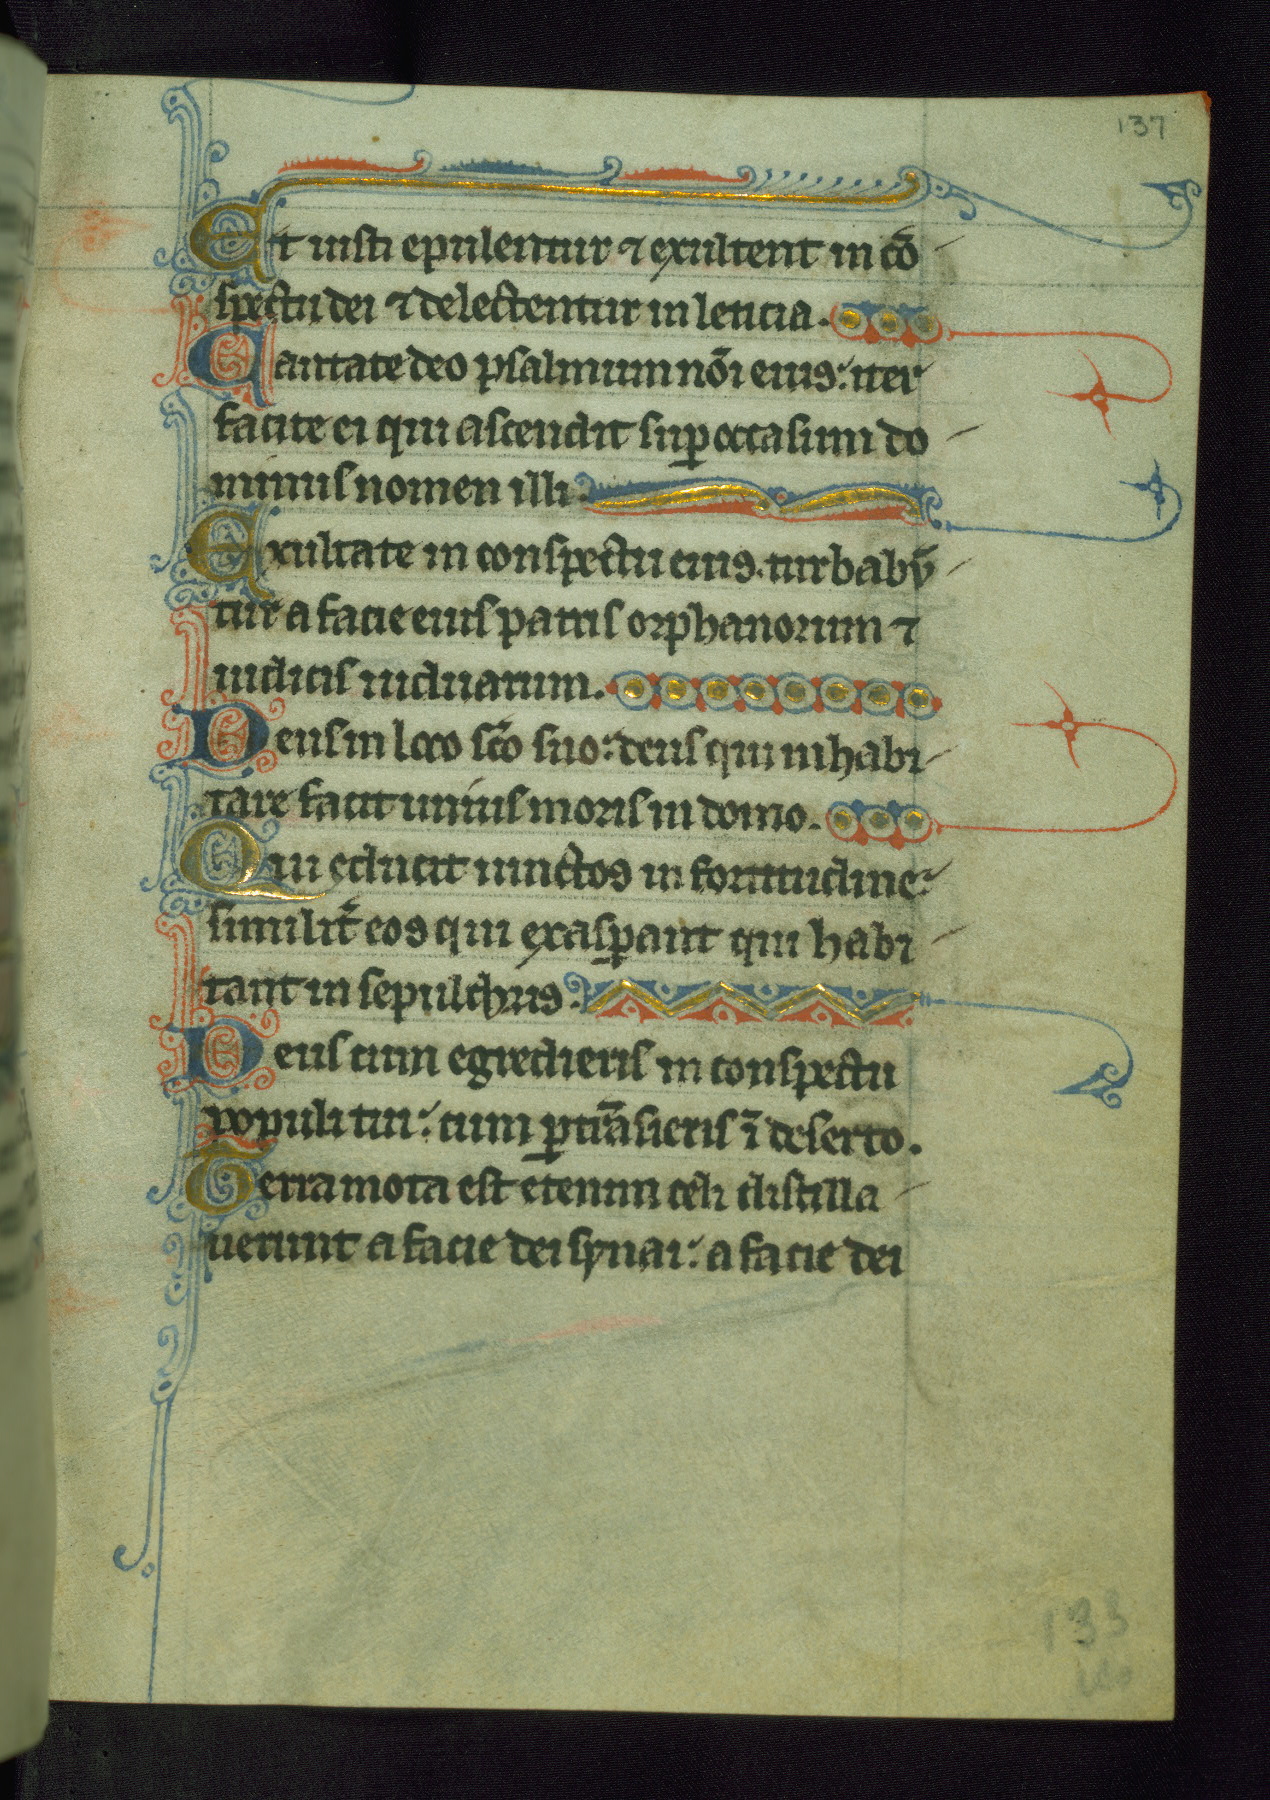 137
Et iusti epulentur ⁊ exultent in cō
spectu dei ⁊ delectentur in leticia.
Cantate deo psalmum nōi eius: iter
facite ei qui ascendit suꝑ occasum do
minus nomen illi.
Exultate in conspectu eius. turbabūn
tur a facie eius patris orphanorum ⁊
iudicis uiduarum.
Deus in loco sc̄o suo: deus qui inhabi
tare facit unius moris in domo.
Qui educit uinctos in fortitudine:
similit̄ eos qui exasꝑant qui habi
tant in sepulchris.
Deus cum egredieris in conspectu
populi tui: cum ꝑtrāsieris ī deserto.
Terra mota est etenim celi distilla
uerunt a facie dei synai: a facie dei
133